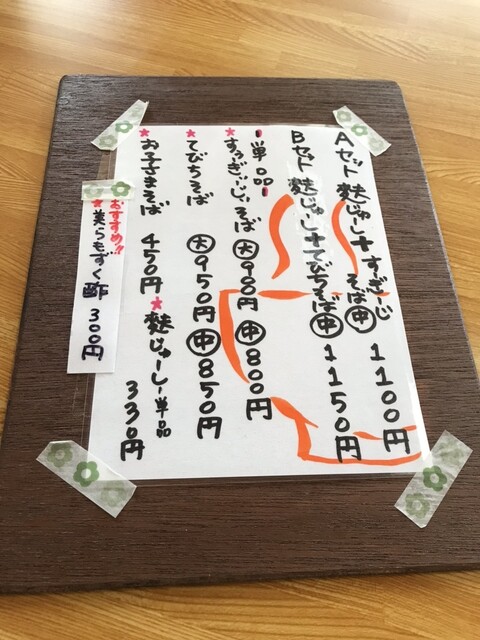 Aセット 麩じゅーしー+すぎーじそば㊥ 1100円
Bセット 麩じゅーしー+てびちそば㊥ 1150円
単品
★すうぎーじそば ㊅900円 ㊥800円
★てびちそば ㊅950円 ㊥850円
★お子さまそば 450円
★麩じゅーしー単品 330円
おすすめ!!
★美らもずく酢 300円